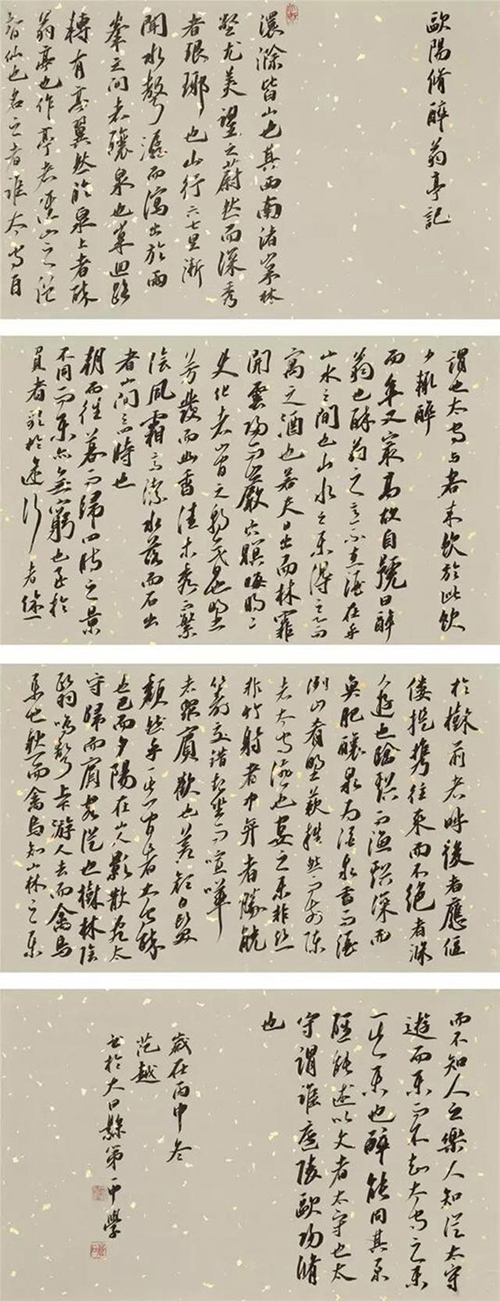 歐陽脩醉翁亭記
環滁皆山也其西南諸峯林
壑尤美望之蔚然而深秀
者琅琊也山行六七里漸
聞水聲潺而瀉出於兩
峯之間者釀泉也峯迴路
轉有亭翼然於泉上者醉
翁亭也作亭者誰山之僧
智仙也名之者誰太守自
謂也太守与客來飲於此飲
少輒醉
而年又最高故自號曰醉
翁也醉翁之意不在酒在乎
山水之間也山水之樂得之心而
寓之酒也若夫日出而林霏
開雲歸而巖穴暝晦明
變化者山間之朝暮也野
芳發而幽香佳木秀而繁
陰風霜高潔水落而石出
者山間之四時也
朝而往暮而歸四時之景
不同而樂亦無窮也至於
負者歌於途行者休
於樹前者呼後者應傴
僂提攜往來而不絕者滁
人遊也臨谿而漁谿深而
魚肥釀泉為酒泉香而酒
洌山肴野蔌雜然而前陳
者太守宴也宴之樂非絲
非竹射者中弈者勝觥
籌交錯起坐而喧嘩
者眾賓歡也蒼顏白髮
頹然乎其間者太守醉
也已而夕陽在山人影散亂太
守歸而賓客從也樹林陰
翳鳴聲上下游人去而禽鳥
樂也然而禽鳥知山林之樂
而不知人之樂人知從太守
遊而樂而不知太守之樂
其樂也醉能同其樂
醒能述以文者太守也太
守謂誰廬陵歐陽脩
也
歲在丙申冬
范越
書於大田縣第一中學